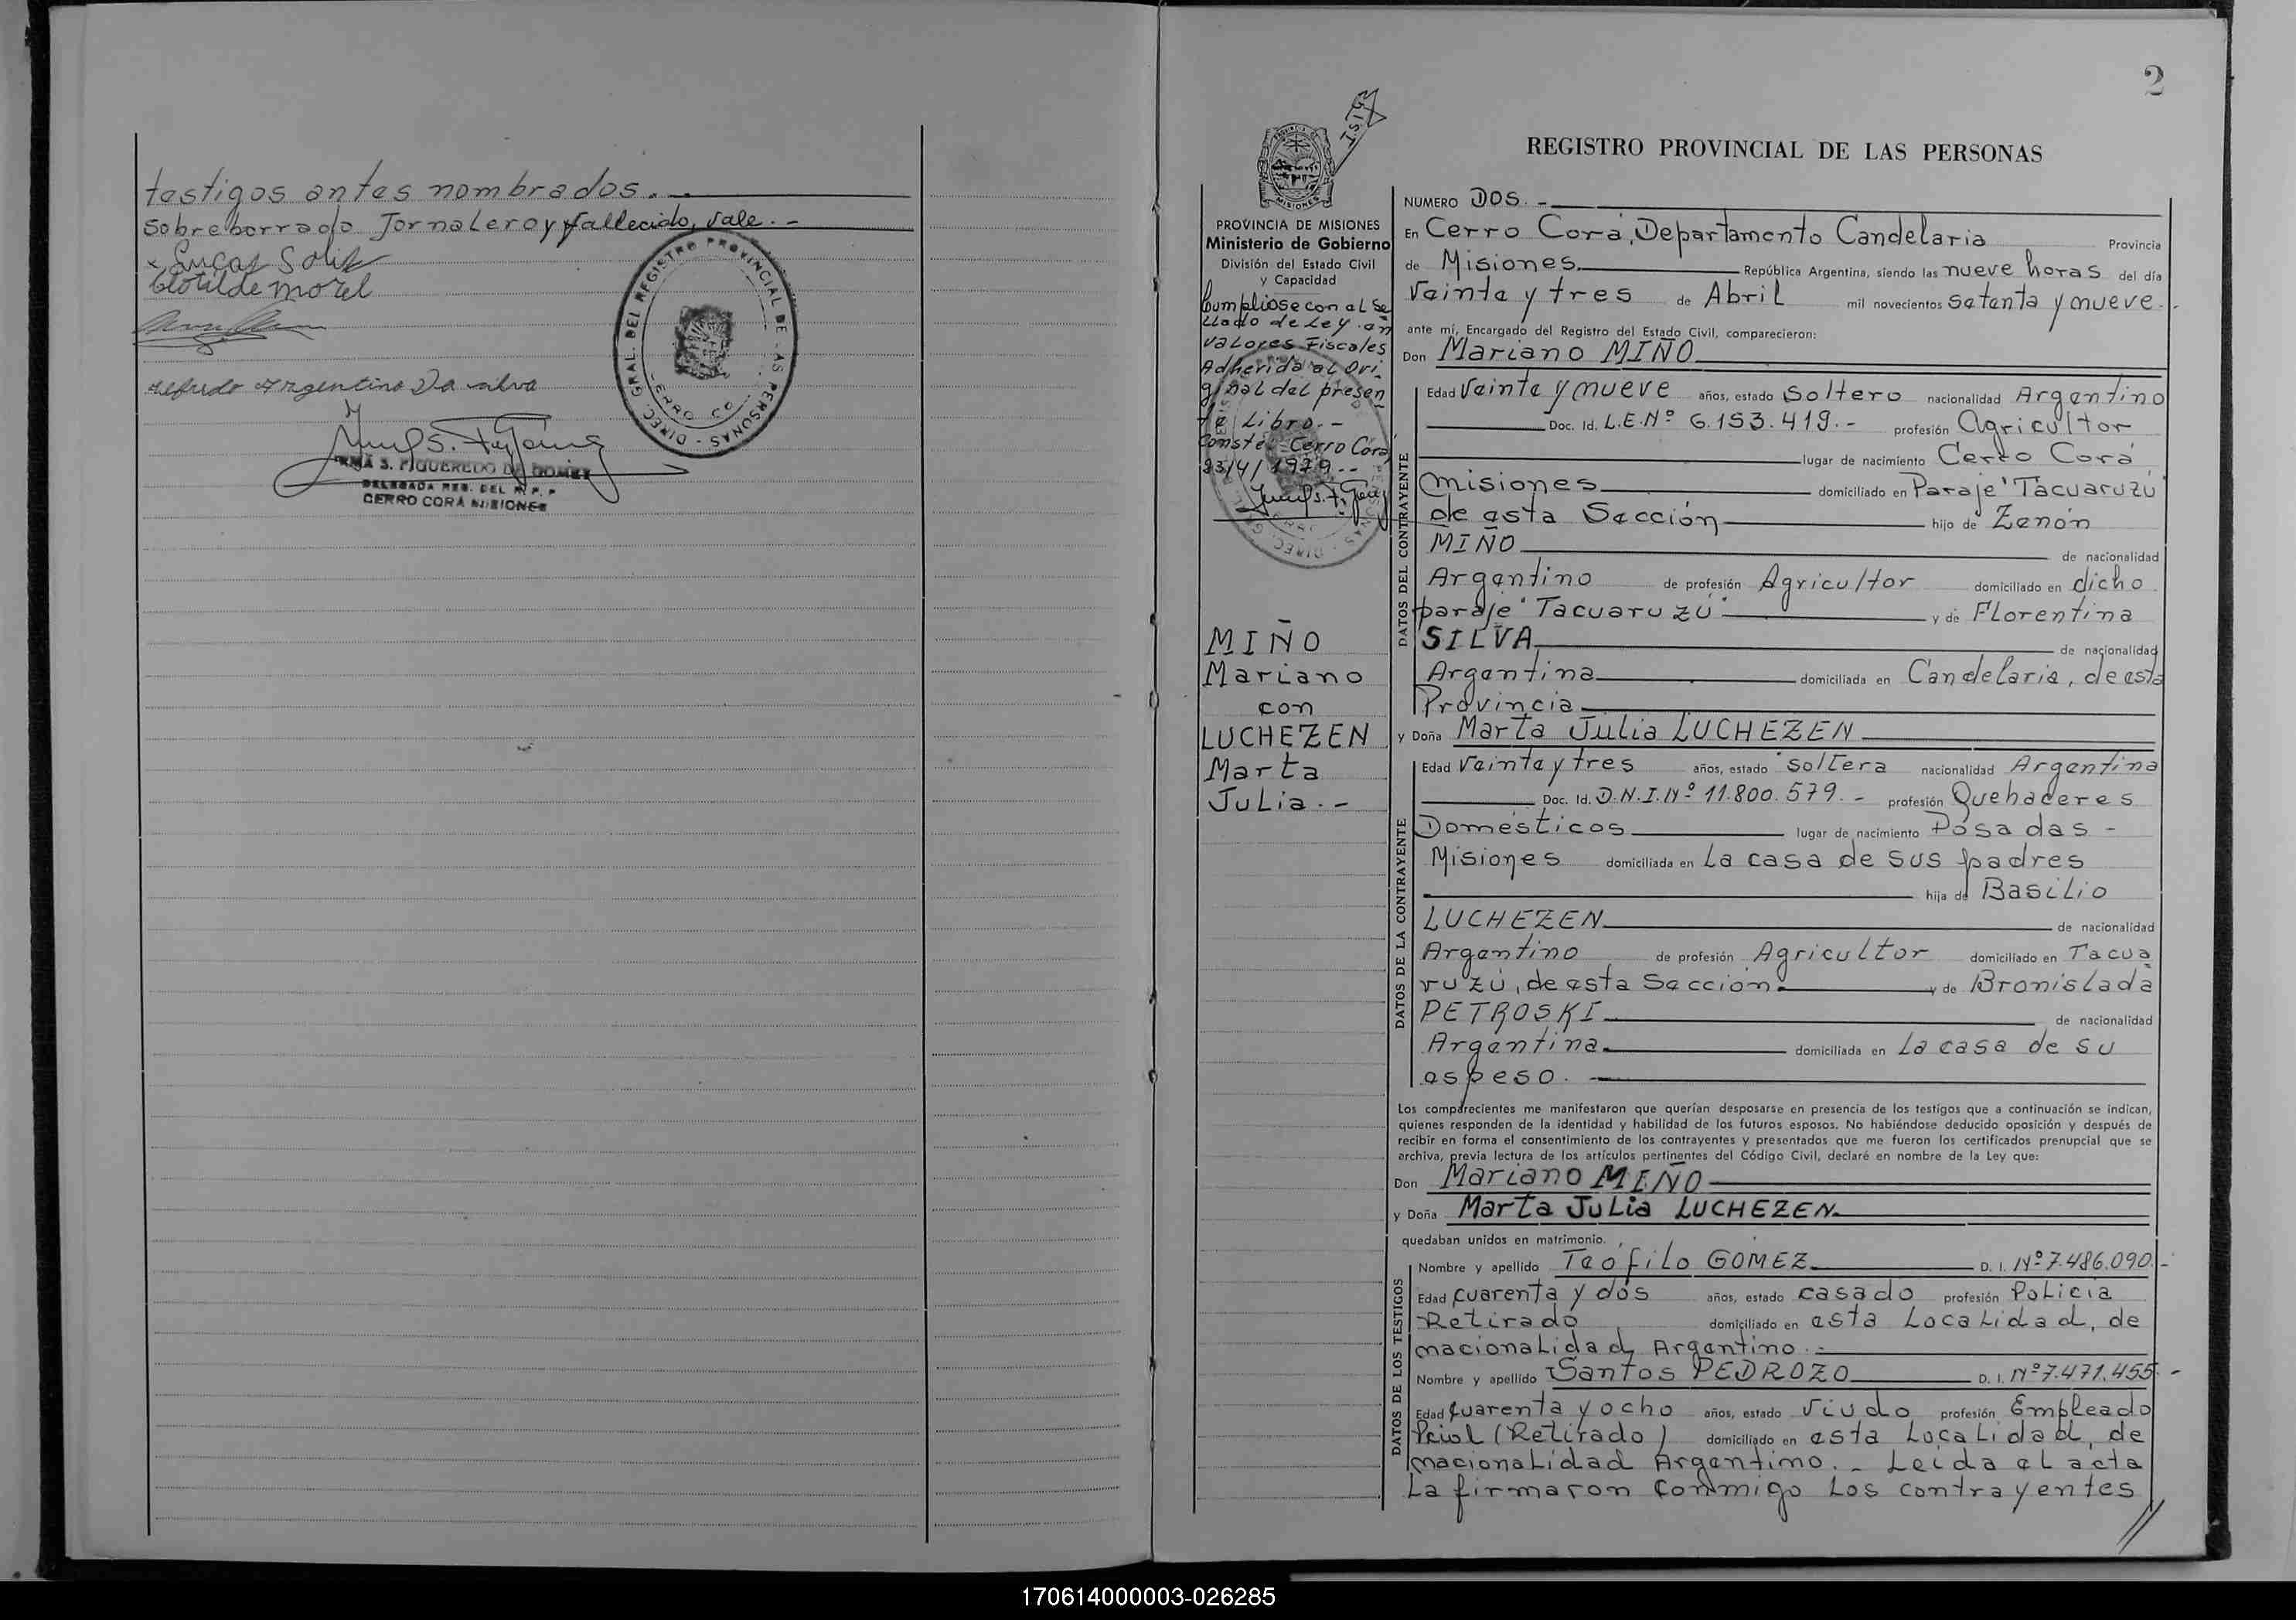 testigos antes nombrados. -
Sobre borrado Jornalero y fallecido, vale. -
x Lucas Solis
Clotilde morel
Argentino Da silva
REGISTRO PROVINCIAL DE
PERSONAS
DIREC. GRAL. DEL
IRMA S. FIGUEREDO DE GOMEZ
DELEGADA
CERRO CORÁ MISIONES
2
REGISTRO PROVINCIAL DE LAS PERSONAS
PROVINCIA DE MISIONES
Ministerio de Gobierno
División del Estado Civil
y Capacidad
Cumpliose con el Se
llado de Ley en
valores Fiscales
Adherida al Ori
ginal del presen
te Libro. -
Conste. Cerro Corá
23/4/1979. -
MIÑO
Mariano
con
LUCHEZEN
Marta
Julia. -
NUMERO DOS. -
En Cerro Corá, Departamento Candelaria Provincia
de Misiones República Argentina, siendo las nueve horas del día
Veinte y tres de Abril mil novecientos setenta y nueve. -
ante mí, Encargado del Registro del Estado Civil, comparecieron:
Don Mariano MIÑO
DATOS DEL CONTRAYENTE
Edad Veinte y nueve años, estado Soltero nacionalidad Argentino
Doc. Id. L.E.Nº 6.153.419. - profesión Agricultor
lugar de nacimiento Cerro Corá
Misiones domiciliado en Paraje "Tacuaruzú"
de esta Sección hijo de Zenón
MIÑO de nacionalidad
Argentino de profesión Agricultor domiciliado en dicho
paraje "Tacuaruzú" y de Florentina
SILVA de nacionalidad
Argentina domiciliada en Candelaria, de esta
Provincia
y Doña Marta Julia LUCHEZEN
DATOS DE LA CONTRAYENTE
Edad Veinte y tres años, estado soltera nacionalidad Argentina
Doc. Id. D.N.I.Nº 11.800.579. - profesión Quehaceres
Domésticos lugar de nacimiento Posadas -
Misiones domiciliada en La casa de sus padres
hija de Basilio
LUCHEZEN de nacionalidad
Argentino de profesión Agricultor domiciliado en Tacua
ruzú, de esta Sección y de Bronislada
PETROSKI de nacionalidad
Argentina domiciliada en La casa de su
espeso. -
Los comparecientes me manifestaron que querían desposarse en presencia de los testigos que a continuación se indican,
quienes responden de la identidad y habilidad de los futuros esposos. No habiéndose deducido oposición y después de
recibir en forma el consentimiento de los contrayentes y presentados que me fueron los certificados prenupcial que se
archiva, previa lectura de los artículos pertinentes del Código Civil, declaré en nombre de la Ley que:
Don Mariano MIÑO
y Doña Marta Julia LUCHEZEN
quedaban unidos en matrimonio.
DATOS DE LOS TESTIGOS
Nombre y apellido Teófilo GOMEZ D. I. Nº 7.486.090. -
Edad cuarenta y dos años, estado casado profesión Policia
Retirado domiciliado en esta Localidad, de
nacionalidad Argentino. -
Nombre y apellido Santos PEDROZO D. I. Nº 7.471.455. -
Edad cuarenta y ocho años, estado viudo profesión Empleado
(Retirado) domiciliado en esta Localidad, de
nacionalidad Argentino. - Leida el acta
La firmaron conmigo Los contrayentes
//
170614000003-026285